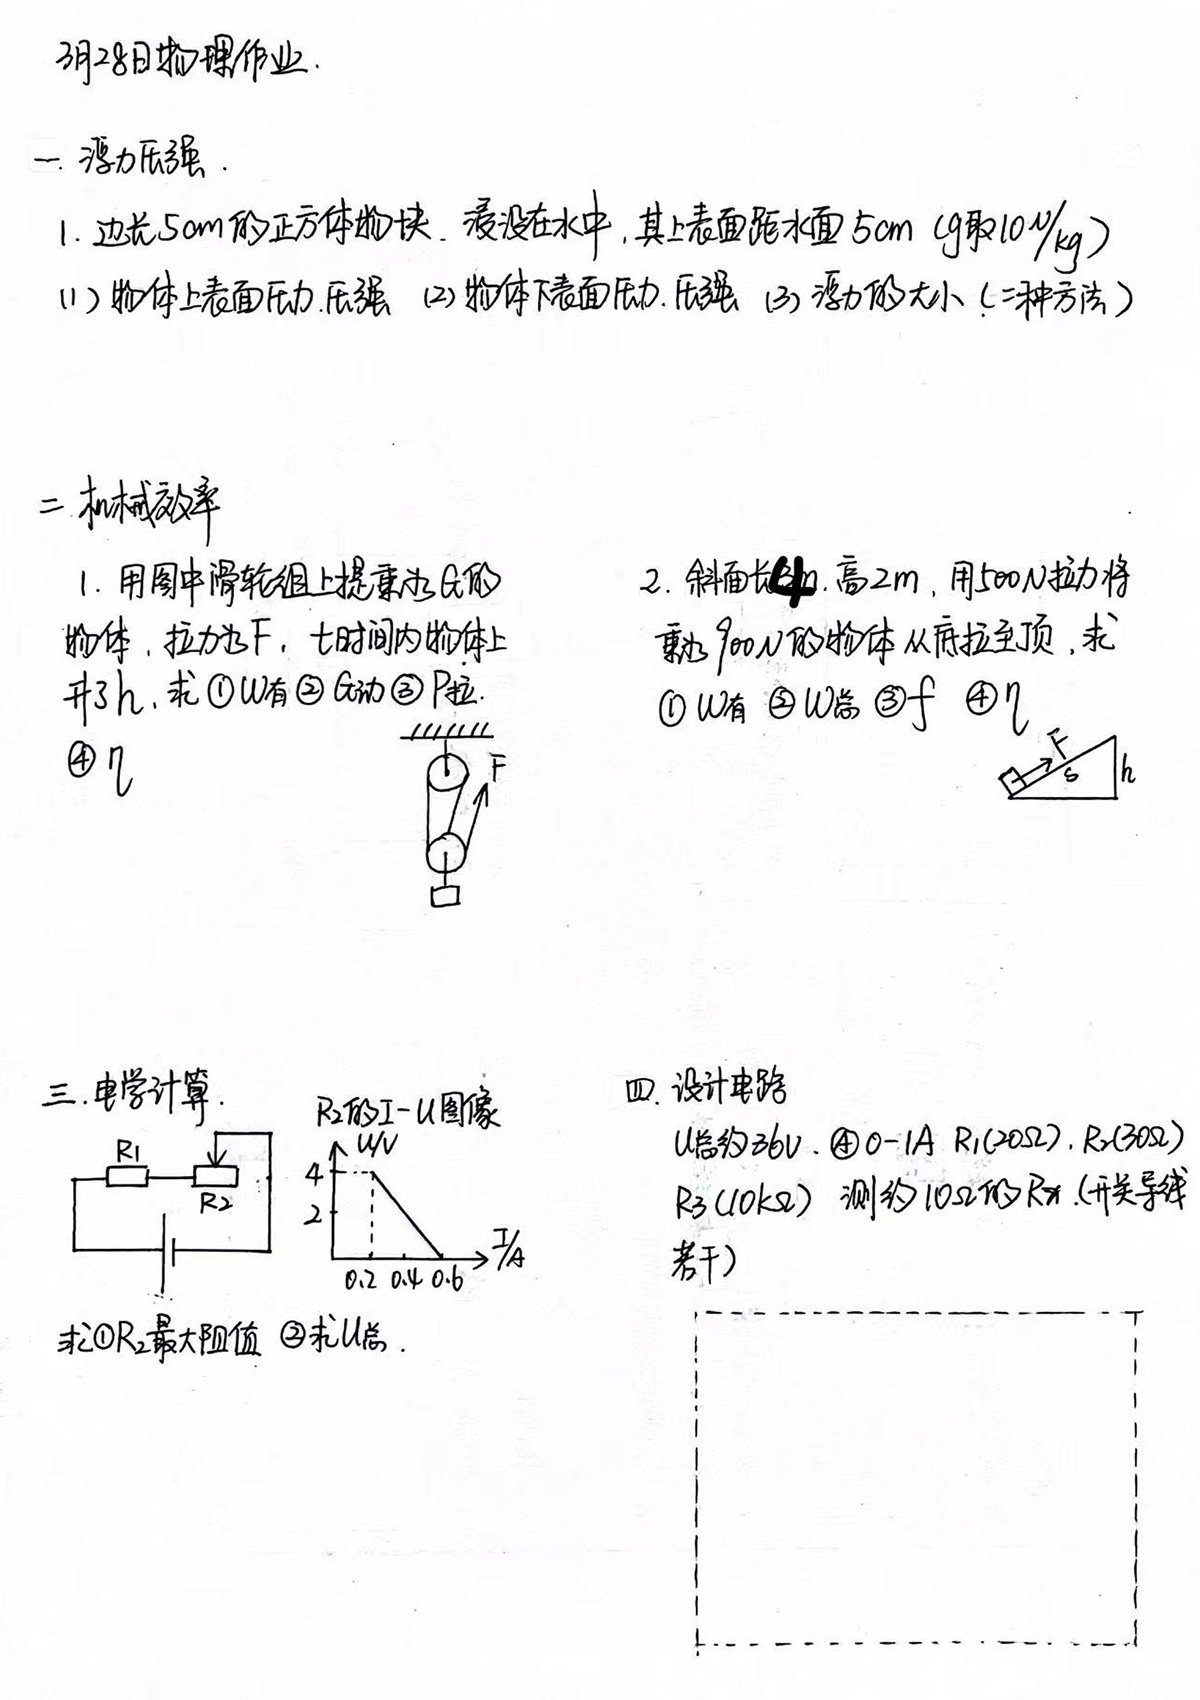 3月28日物理作业.
一. 浮力压强.
1. 边长5cm的正方体物块. 浸没在水中, 其上表面距水面5cm (g取10N/kg)
(1) 物体上表面压力.压强 (2) 物体下表面压力.压强 (3) 浮力的大小 (二种方法)
二. 机械效率
1. 用图中滑轮组上提重为G的
物体, 拉力为F, t时间内物体上
升了h, 求①W有②G动③P拉.
④η
F
2. 斜面长4m. 高2m, 用500N拉力将
重为900N的物体从底拉至顶, 求
①W有 ②W总 ③f ④η
F
s
h
三. 电学计算.
R1
R2
R2的I-U图像
U/V
4
2
0.2 0.4 0.6
I/A
求①R2最大阻值 ②求U总.
四. 设计电路
U总约36V. Ⓐ0-1A R1(20Ω). R2(30Ω)
R3(10kΩ) 测约10Ω的Rx.(开关导线
若干)